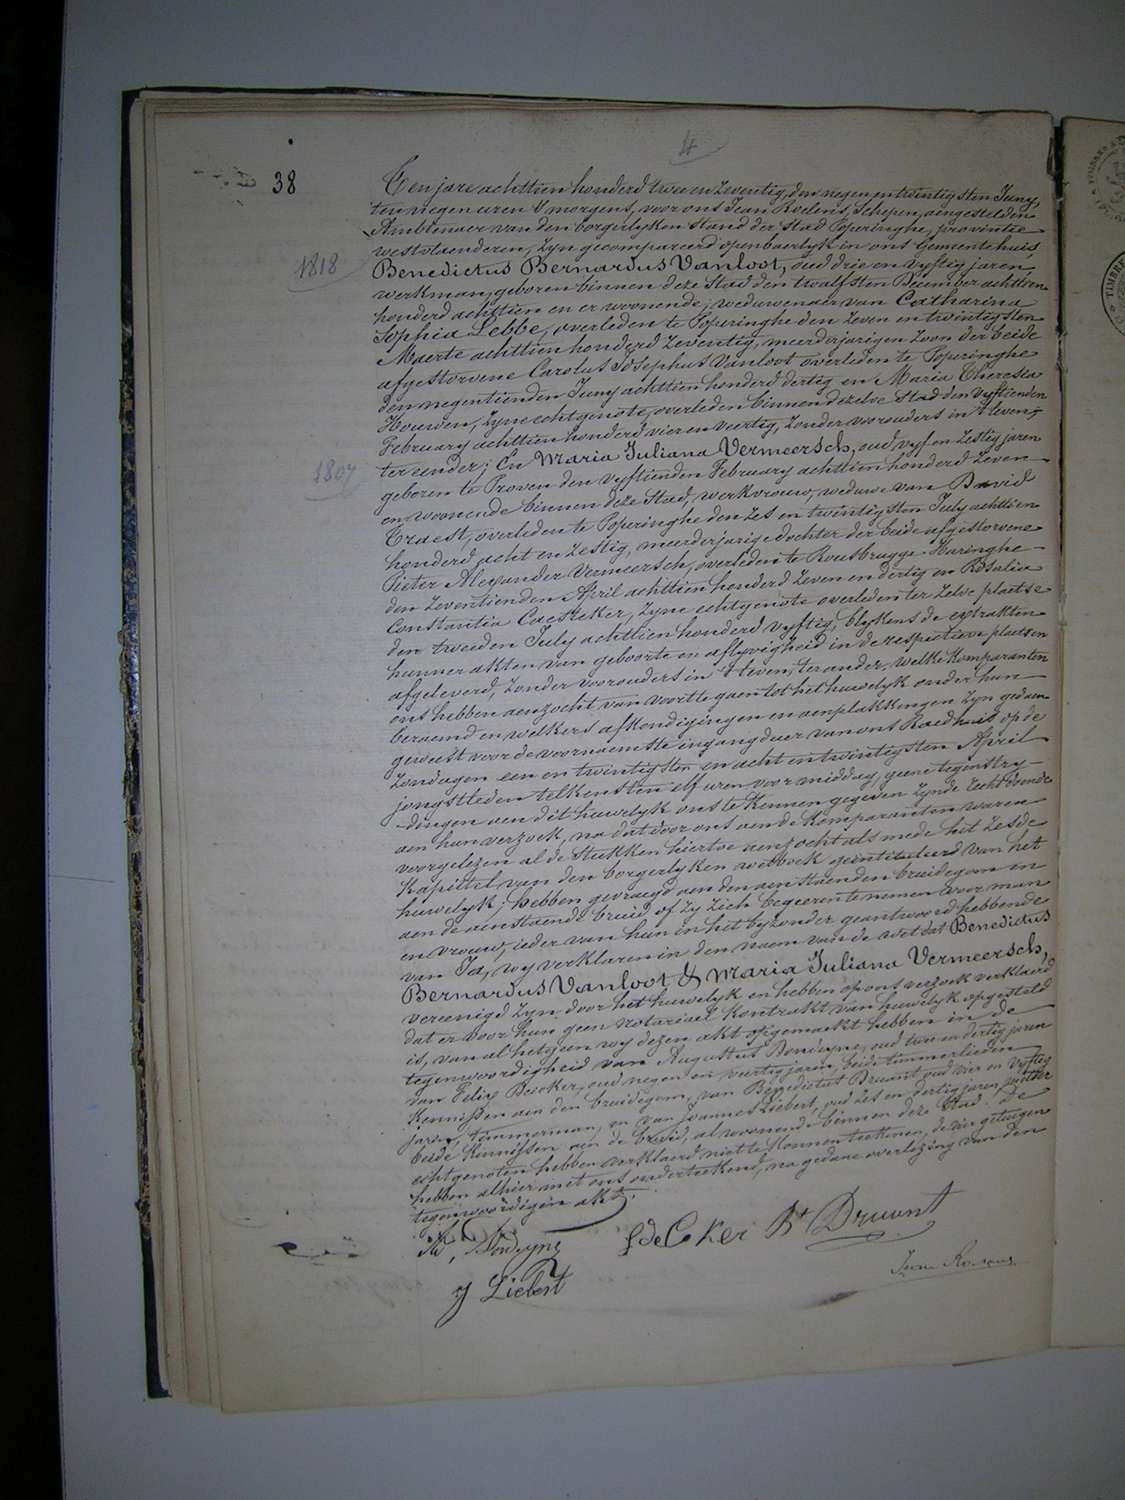 4
38
Ten jare achttien honderd twee en zeventig, den negen en twintigsten Juny,
ten negen uren 's morgens, voor ons Jean Roelens, Schepen, aengestelden
Ambtenaer van den borgerlyken stand der Stad Poperinghe, provintie
westvlaenderen, zyn gecompareerd openbaerlyk in ons Gemeentehuis,
1818
Benedictus Bernardus Vanloot, oud drie en vyftig jaren,
werkman, geboren binnen deze Stad den twalfsten December achttien
honderd achttien en er woonende, weduwenaer van Catharina
Sophia Lebbe, overleden te Poperinghe den zeven en twintigsten
Maerte achttien honderd zeventig, meerderjarigen zoon der beide
afgestorvene Carolus Josephus Vanloot overleden te Poperinghe
den negentienden Juny achttien honderd dertig en Maria Theresia
Houwen, zyne echtgenote, overleden binnen dezelve Stad den vyftienden
February achttien honderd vier en veertig, zonder voorouders in 't leven,
ter eender; En Maria Juliana Vermeersch, oud vyf en zestig jaren
1807
geboren te Proven den vyftienden February achttien honderd zeven
en woonende binnen deze Stad, werkvrouw, weduwe van David
Traest, overleden te Poperinghe den zes en twintigsten July achttien
honderd acht en zestig, meerderjarige dochter der beide afgestorvene
Pieter Alexander Vermeersch, overleden te Rousbrugge-Haringhe
den zeventienden April achttien honderd zeven en dertig en Rosalia
Constantia Caesteker, zyne echtgenote overleden ter zelve plaetse
den tweeden July achttien honderd vyftig, blykens de extrakten
hunner akten van geboorte en aflyvigheid in de respective plaetsen
afgeleverd, zonder voorouders in 't leven, ter ander, welke komparanten
ons hebben aenzocht van voorts te gaen tot het huwelyk onder hun
beraemd en welkers afkondigingen en aenplakkingen zyn gedaen
geweest voor de voornaemste ingangdeur van ons Raedhuis op de
zondagen een en twintigsten en acht en twintigsten April
jongstleden telkens ten elf uren voormiddag, geene tegenstry-
dingen aen dit huwelyk ons te kennen gegeven zynde recht doende
aen hun verzoek, na dat door ons aen de komparanten waren
voorgelezen al de stukken hiertoe aenzocht als mede het zesde
kapittel van den borgerlyken wetboek geintituleerd van het
huwelyk; hebben gevraegd aen den aenstaenden bruidegom en
aen de aenstaende bruid of zy zich begeeren te nemen voor man
en vrouw, ieder van hun in het byzonder geantwoord hebbende
van Ja, wy verklaren in den naem van de wet dat Benedictus
Bernardus Vanloot & Maria Juliana Vermeersch,
vereenigd zyn door het huwelyk en hebben op ons verzoek verklaerd
dat er voor hun geen notariael kontrakt van huwelyk opgesteld
is, van al hetgeen wy dezen akt opgemaekt hebben in de
tegenwoordigheid van Augustus Dondeyne, oud twee en dertig jaren
van Felix Decoker, oud negen en veertig jaren, beide timmerlieden
kennissen aen den bruidegom, van Benedictus Druant oud vier en vyftig
jaren, timmerman, en van Joannes Liebert, oud zes en dertig jaren,
beide kennissen aen de bruid, al woonende binnen deze Stad. De
echtgenoten hebben verklaerd niet te konnen teekenen, de vier getuigen
hebben alhier met ons onderteekend, na gedane overlezing van den
tegenwoordigen akt.
Dondeyne
F deCoker
Bt Druant
J Liebert
Jean Roelens